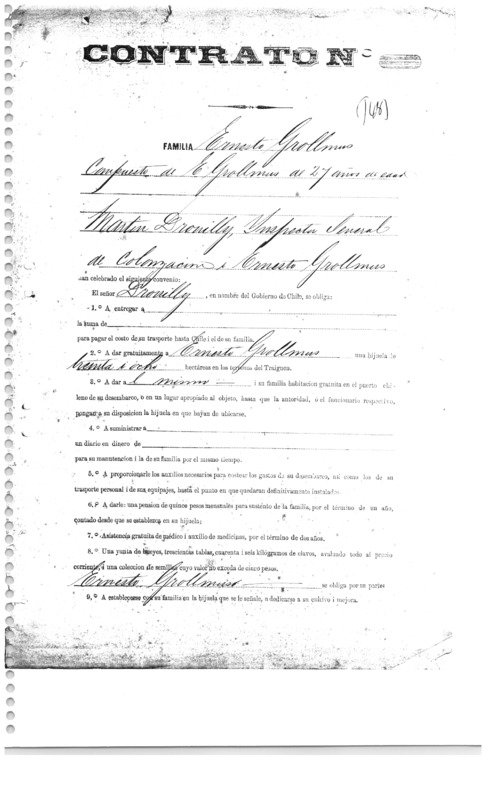 CONTRATO Nº
(148)
FAMILIA Ernesto Grollmus
Compuesta de E. Grollmus de 27 años de edad
Martin Drouilly, Inspector Jeneral
de Colonizacion i Ernesto Grollmus
han celebrado el siguiente convenio:
El señor Drouilly, en nombre del Gobierno de Chile, se obliga:
1.º A entregar a
la suma de
para pagar el costo de su trasporte hasta Chile i el de su familia.
2.º A dar gratuitamente a Ernesto Grollmus una hijuela de
treinta i ocho hectáreas en los terrenos del Traiguen.
3.º A dar al mismo i su familia habitacion gratuita en el puerto chi-
leno de su desembarco, o en un lugar apropiado al objeto, hasta que la autoridad, o el funcionario respectivo,
pongan a su disposicion la hijuela en que hayan de ubicarse.
4.º A suministrar a
un diario en dinero de
para su manutencion i la de su familia por el mismo tiempo.
5.º A proporcionarle los auxilios necesarios para costear los gastos de su desembarco, así como los de su
trasporte personal i de sus equipajes, hasta el punto en que quedaran definitivamente instalados.
6.º A darle: una pension de quince pesos mensuales para sustento de la familia, por el término de un año,
contado desde que se establezca en su hijuela;
7.º Asistencia gratuita de médico i auxilio de medicinas, por el término de dos años.
8.º Una yunta de bueyes, trescientas tablas, cuarenta i seis kilógramos de clavos, avaluado todo al precio
corriente, i una coleccion de semillas cuyo valor no exceda de cinco pesos.
Ernesto Grollmus se obliga por su parte:
9.º A establecerse con su familia en la hijuela que se le señale, a dedicarse a su cultivo i mejora.